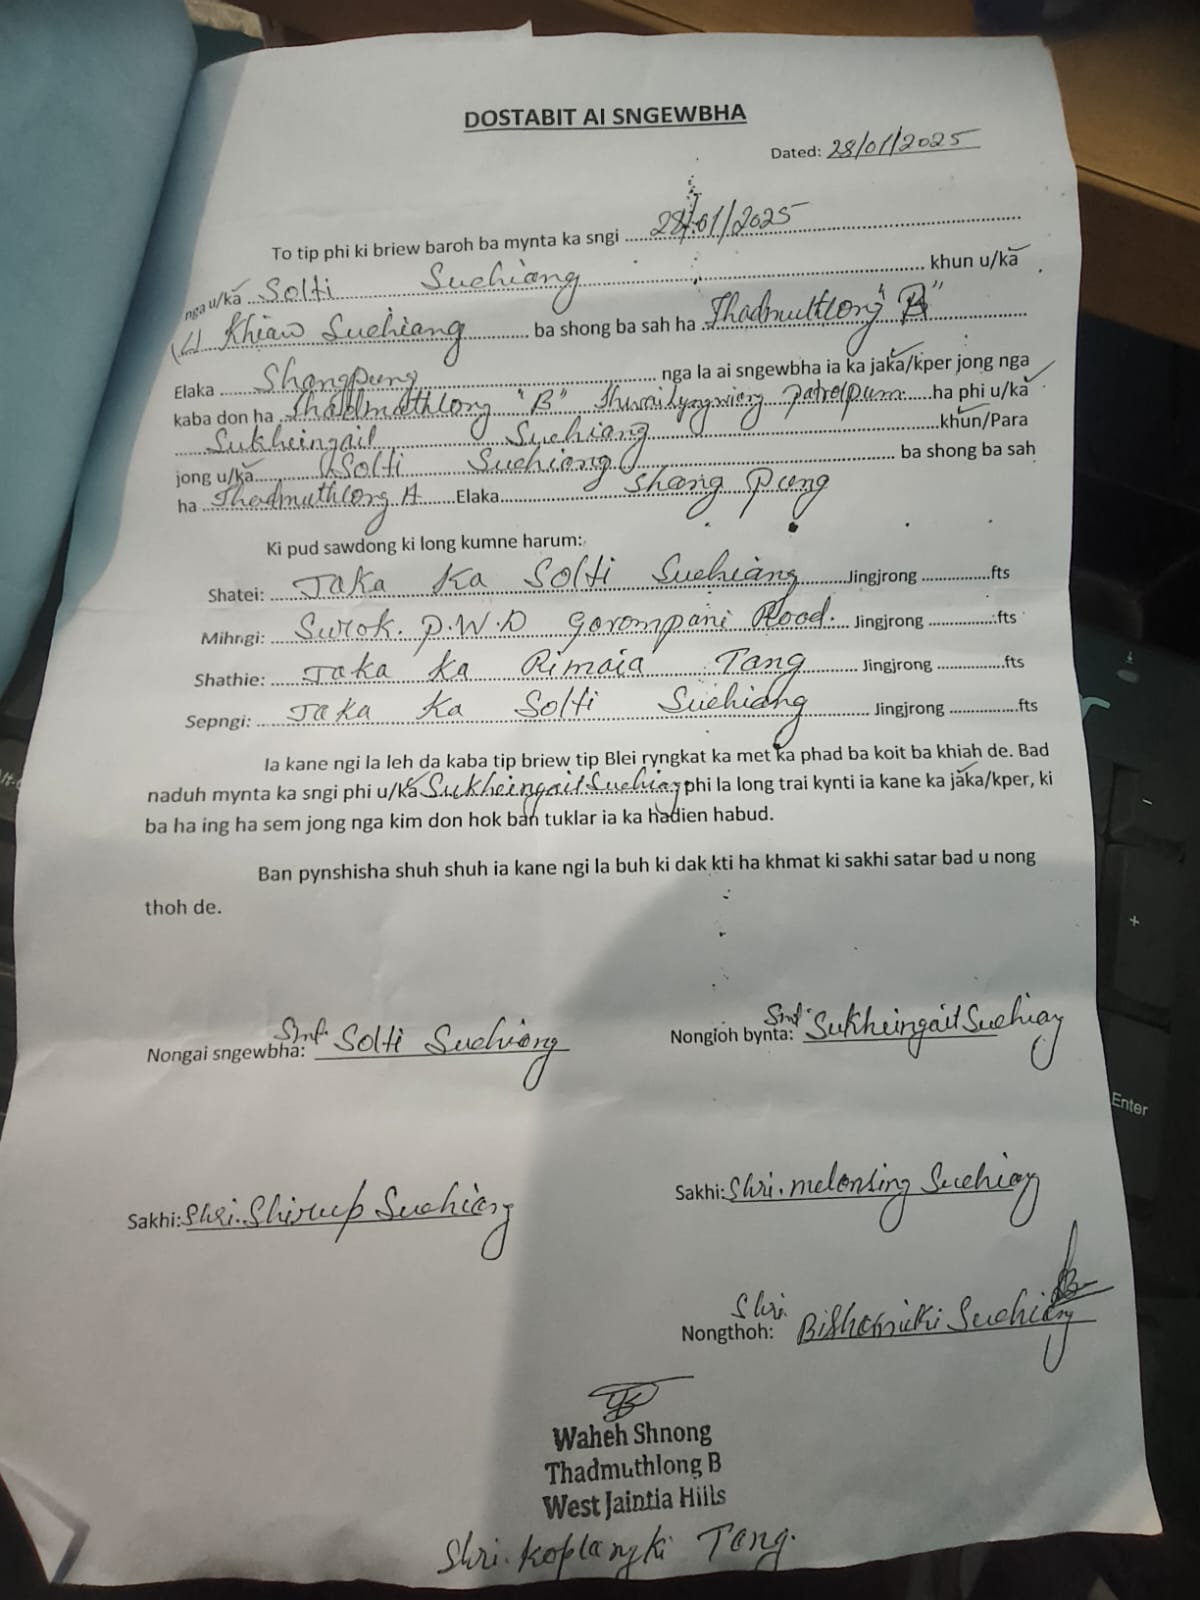 DOSTABIT AI SNGEWBHA
Dated: 28/01/2025
To tip phi ki briew baroh ba mynta ka sngi 28/01/2025
nga u/ka Solti Suchiang khun u/ka
(L) Khiaw Suchiang ba shong ba sah ha Thadmuthlong "B"
Elaka Shangpung nga la ai sngewbha ia ka jaka/kper jong nga
kaba don ha Thadmuthlong "B" patrolpum ha phi u/ka
Sukheingait Suchiang khun/Para
jong u/ka Solti Suchiang ba shong ba sah
ha Thadmuthlong A Elaka Shang Pung
Ki pud sawdong ki long kumne harum:
Shatei: Jaka Ka Solti Suchiang Jingjrong fts
Mihngi: Surok. P.W.D Garampani Road. Jingjrong fts
Shathie: Jaka Ka Rimaia Tang Jingjrong fts
Sepngi: Jaka Ka Solti Suchiang Jingjrong fts
Ia kane ngi la leh da kaba tip briew tip Blei ryngkat ka met ka phad ba koit ba khiah de. Bad
naduh mynta ka sngi phi u/ka Sukheingait Suchiang phi la long trai kynti ia kane ka jaka/kper, ki
ba ha ing ha sem jong nga kim don hok ban tuklar ia ka hadien habud.
Ban pynshisha shuh shuh ia kane ngi la buh ki dak kti ha khmat ki sakhi satar bad u nong
thoh de.
Nongai sngewbha: Smt. Solti Suchiang
Nongioh bynta: Smt. Sukheingait Suchiang
Sakhi: Shri. melansing Suchiang
Sakhi: Shri. Shirup Suchiang
Nongthoh: Shri Suchiang
Waheh Shnong
Thadmuthlong B
West Jaintia Hills
Shri. Koplangki Tang.